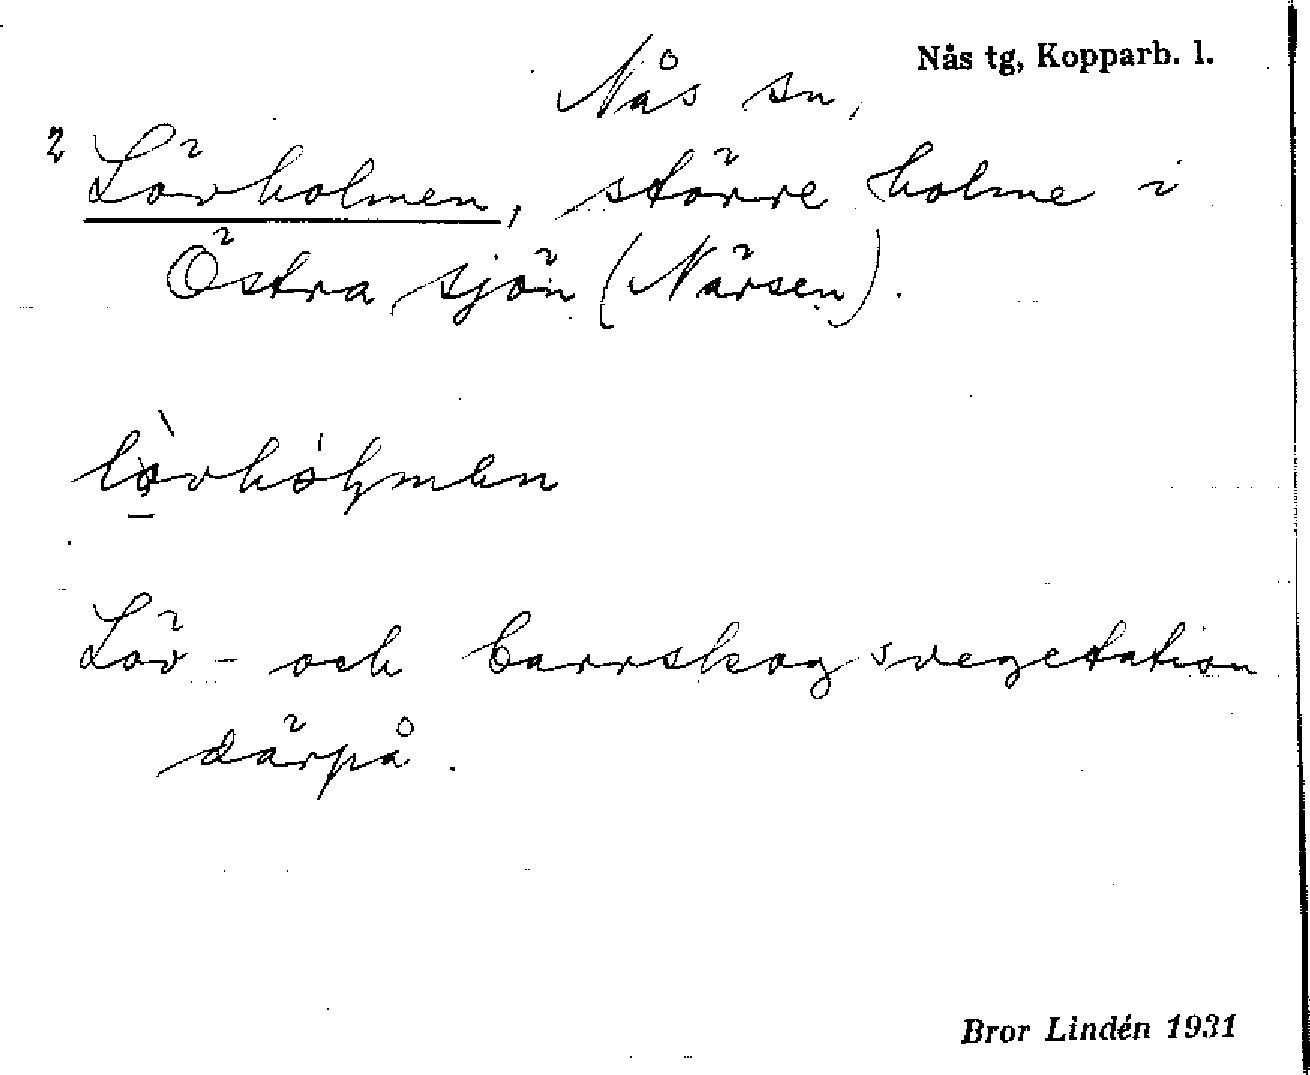 Nås tg, Kopparb. l.
Nås sn,
2 Lövholmen, större holme i
Östra sjön (Närsen).
Löv- och barrskogsvegetation
därpå.
Bror Lindén 1931